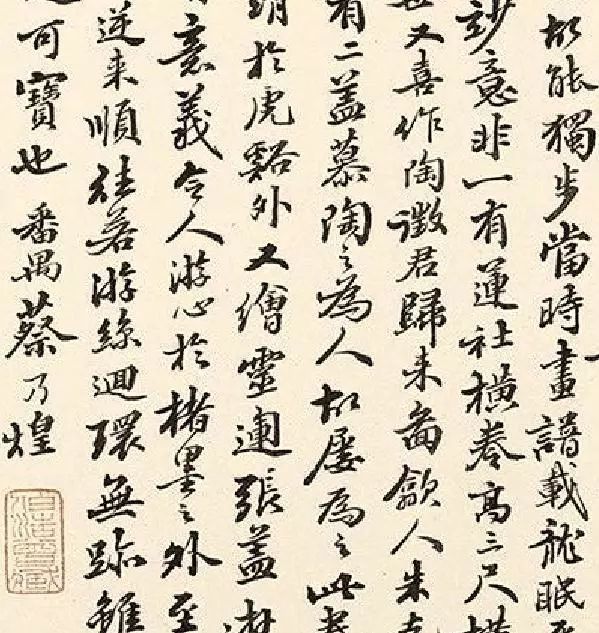 故能獨步當時畫譜載龍眠
妙意非一有蓮社橫卷高三尺橫
又喜作陶徵君歸來圖歙人朱克
有二蓋慕陶之為人故屢為之此卷
於虎谿外又繪靈運張蓋
意義令人游心於楮墨之外至
逆來順往若游絲迴環無跡雖
可寶也 番禺蔡乃煌